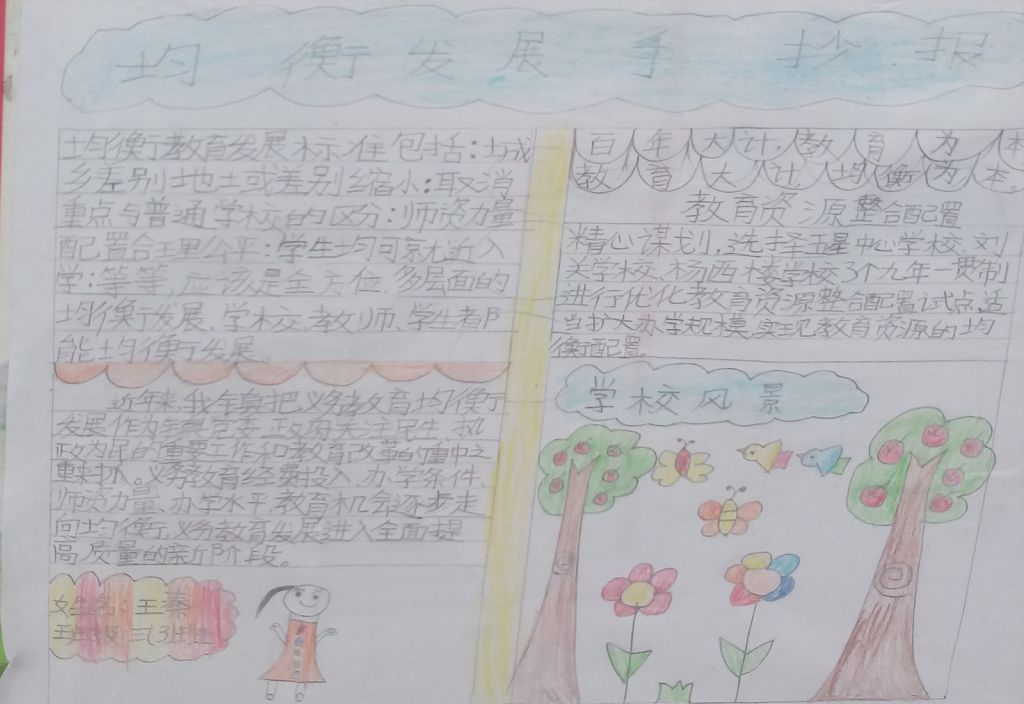 均衡发展手抄报
均衡教育发展标准包括：城
乡差别地土或差别缩小：取消
重点与普通学校的区分：师资力量
配置合理公平：学生均可就近入
学：等等，应该是全方位多层面的
均衡发展、学校、教师、学生者阝
能均衡发展。
近年来，我县把义务教育均衡
发展作为县党委、政府关注民生、执
政为民的重要工作和教育改革的重中之
重来抓。义务教育经费投入、办学条件、
师资力量、办学水平、教育机会逐步走
向均衡，义务教育发展进入全面提
高质量的新阶段。
姓名：王
班级：三(3)班
百年大计，教育为本
教育大计，均衡为本。
教育资源整合配置
精心谋划，选择五星中心学校、刘
关学校、杨西楼学校3个九年一贯制
进行优化教育资源整合配置试点，适
当扩大办学规模，实现教育资源的均
衡配置。
学校风景